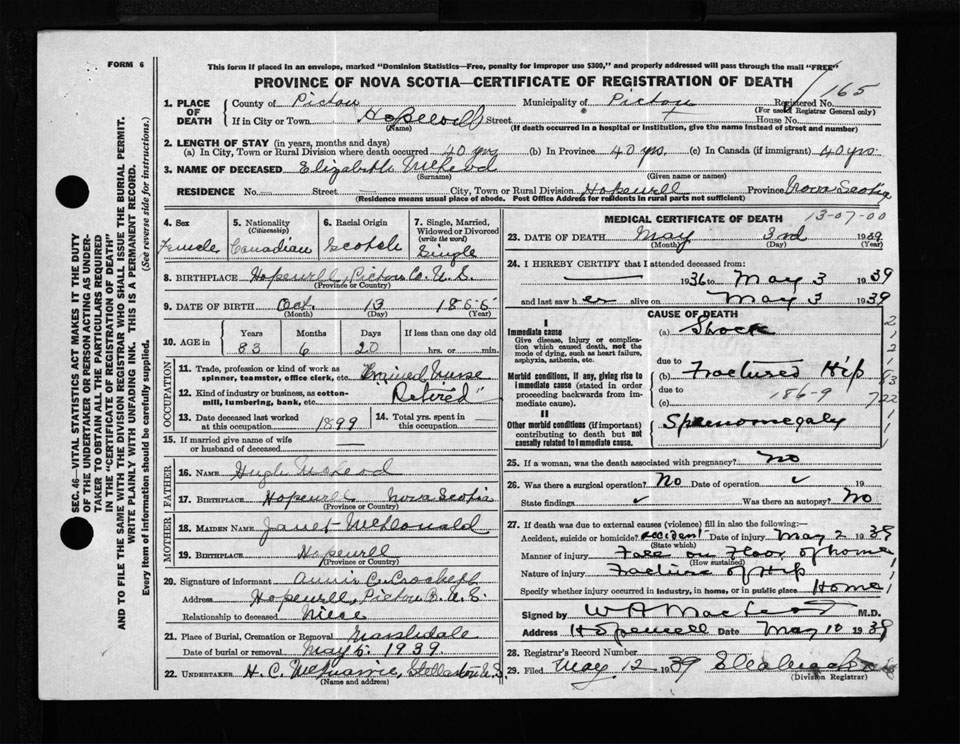 FORM 6
This form if placed in an envelope, marked "Dominion Statistics—Free, penalty for improper use $300," and properly addressed will pass through the mail "FREE"
PROVINCE OF NOVA SCOTIA—CERTIFICATE OF REGISTRATION OF DEATH
165
1. PLACE OF DEATH
County of Pictou Municipality of Pictou Registered No.
(For use of Registrar General only)
If in City or Town Hopewell Street House No.
(Name) (If death occurred in a hospital or institution, give the name instead of street and number)
2. LENGTH OF STAY (in years, months and days)
(a) In City, Town or Rural Division where death occurred 40 yrs (b) In Province 40 yrs. (c) In Canada (if immigrant) 40 yrs
3. NAME OF DECEASED Elizabeth McLeod
(Surname) (Given name or names)
RESIDENCE No. Street City, Town or Rural Division Hopewell Province Nova Scotia
(Residence means usual place of abode. Post Office Address for residents in rural parts not sufficient)
4. Sex Female
5. Nationality (Citizenship) Canadian
6. Racial Origin Scotch
7. Single, Married, Widowed or Divorced (write the word) Single
8. BIRTHPLACE Hopewell, Pictou Co. N.S.
(Province or Country)
9. DATE OF BIRTH Oct. 13 1855
(Month) (Day) (Year)
10. AGE in Years Months Days If less than one day old
83 6 20 hrs. or min.
OCCUPATION
11. Trade, profession or kind of work as spinner, teamster, office clerk, etc. Trained Nurse
12. Kind of industry or business, as cotton-mill, lumbering, bank, etc. Retired
13. Date deceased last worked at this occupation 1899
14. Total yrs. spent in this occupation
15. If married give name of wife or husband of deceased
FATHER
16. NAME Hugh McLeod
17. BIRTHPLACE Hopewell Nova Scotia
(Province or Country)
MOTHER
18. MAIDEN NAME Janet McDonald
19. BIRTHPLACE Hopewell
(Province or Country)
20. Signature of informant Annie C. Crockett
Address Hopewell, Pictou
Relationship to deceased Niece
21. Place of Burial, Cremation or Removal
Date of burial or removal May 5, 1939.
22. UNDERTAKER H. C. Stellarton N.S.
(Name and address)
MEDICAL CERTIFICATE OF DEATH
13-07-00
23. DATE OF DEATH May 3rd 1939
(Month) (Day) (Year)
24. I HEREBY CERTIFY that I attended deceased from:
1936 to May 3 1939
and last saw her alive on May 3 1939
CAUSE OF DEATH
I
Immediate cause
Give disease, injury or complication which caused death, not the mode of dying, such as heart failure, asphyxia, asthenia, etc.
(a) Shock
due to
Morbid conditions, if any, giving rise to immediate cause (stated in order proceeding backwards from immediate cause).
(b) Fractured Hip
due to
186-9
(c)
II
Other morbid conditions (if important) contributing to death but not causally related to immediate cause.
Splenomegaly
25. If a woman, was the death associated with pregnancy? No
26. Was there a surgical operation? No Date of operation 19
State findings Was there an autopsy? No
27. If death was due to external causes (violence) fill in also the following:—
Accident, suicide or homicide? accident Date of injury May 2 1939
(State which)
Manner of injury Fall on Floor of home
(How sustained)
Nature of injury Fracture of Hip
Specify whether injury occurred in industry, in home, or in public place Home
Signed by W A MacLeod M.D.
Address Hopewell Date May 10 1939
28. Registrar's Record Number
29. Filed May 12 1939
(Division Registrar)
SEC. 46—VITAL STATISTICS ACT MAKES IT THE DUTY
OF THE UNDERTAKER OR PERSON ACTING AS UNDER-
TAKER TO OBTAIN ALL THE PARTICULARS REQUIRED
IN THE "CERTIFICATE OF REGISTRATION OF DEATH"
AND TO FILE THE SAME WITH THE DIVISION REGISTRAR WHO SHALL ISSUE THE BURIAL PERMIT.
WRITE PLAINLY WITH UNFADING INK. THIS IS A PERMANENT RECORD.
Every item of information should be carefully supplied. (See reverse side for instructions.)